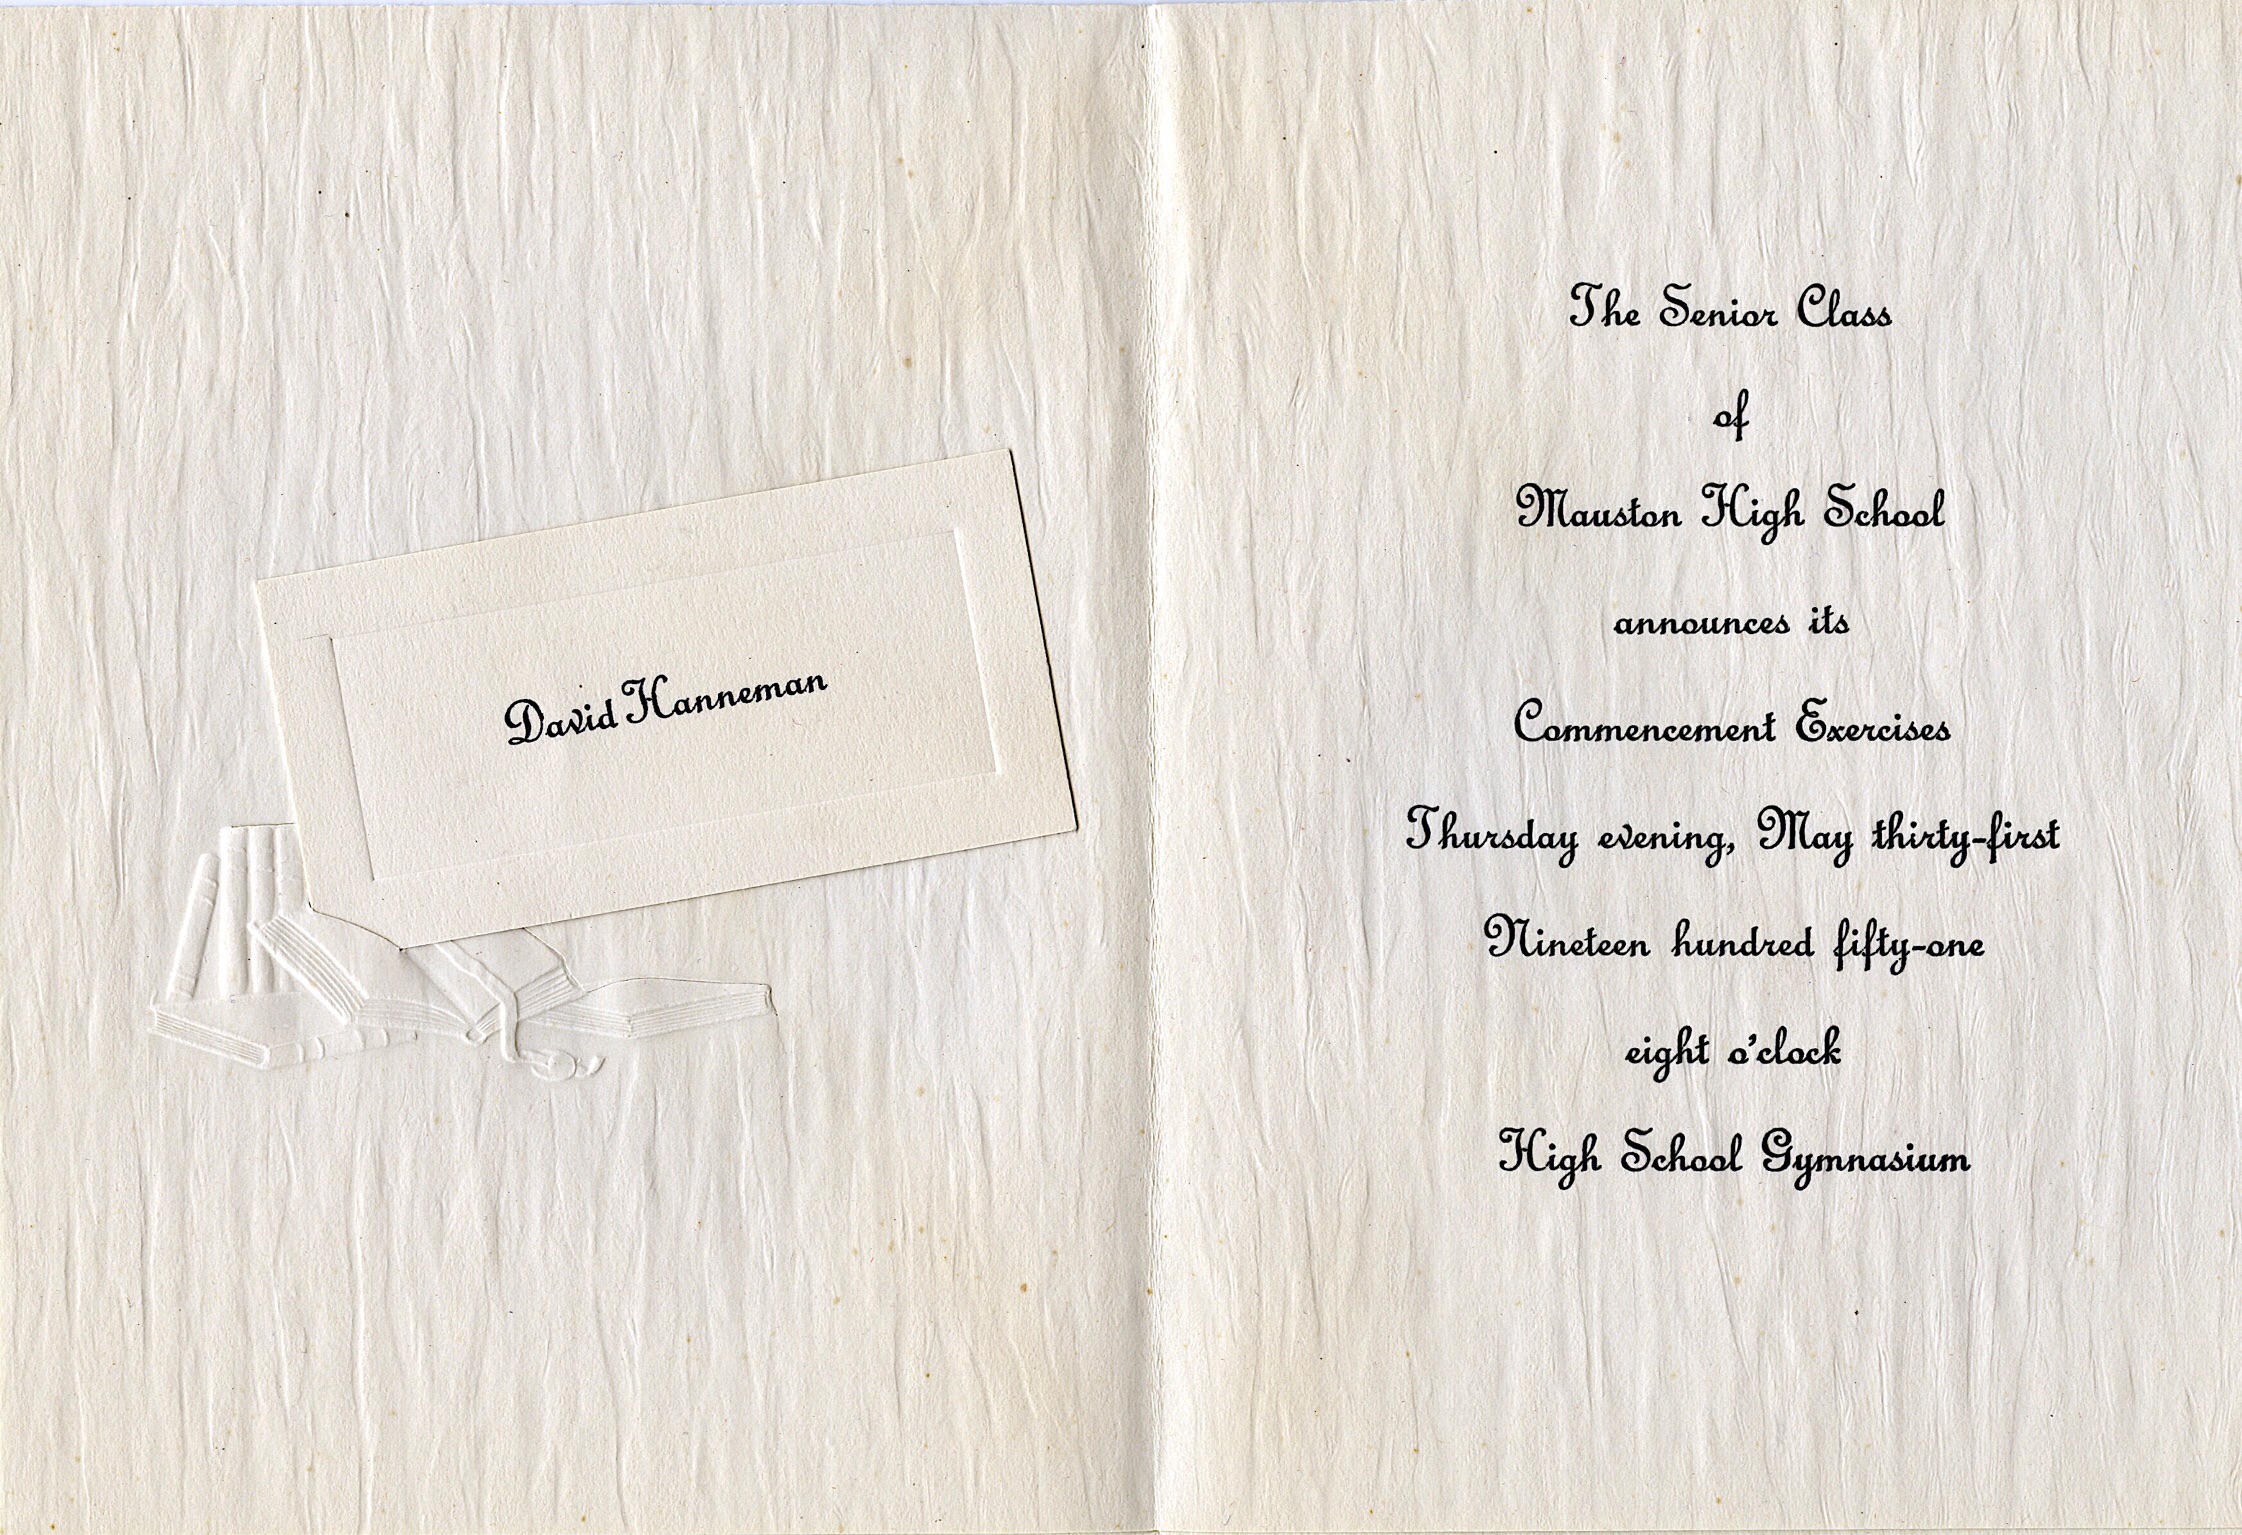 David Hanneman
The Senior Class
of
Mauston High School
announces its
Commencement Exercises
Thursday evening, May thirty-first
Nineteen hundred fifty-one
eight o'clock
High School Gymnasium